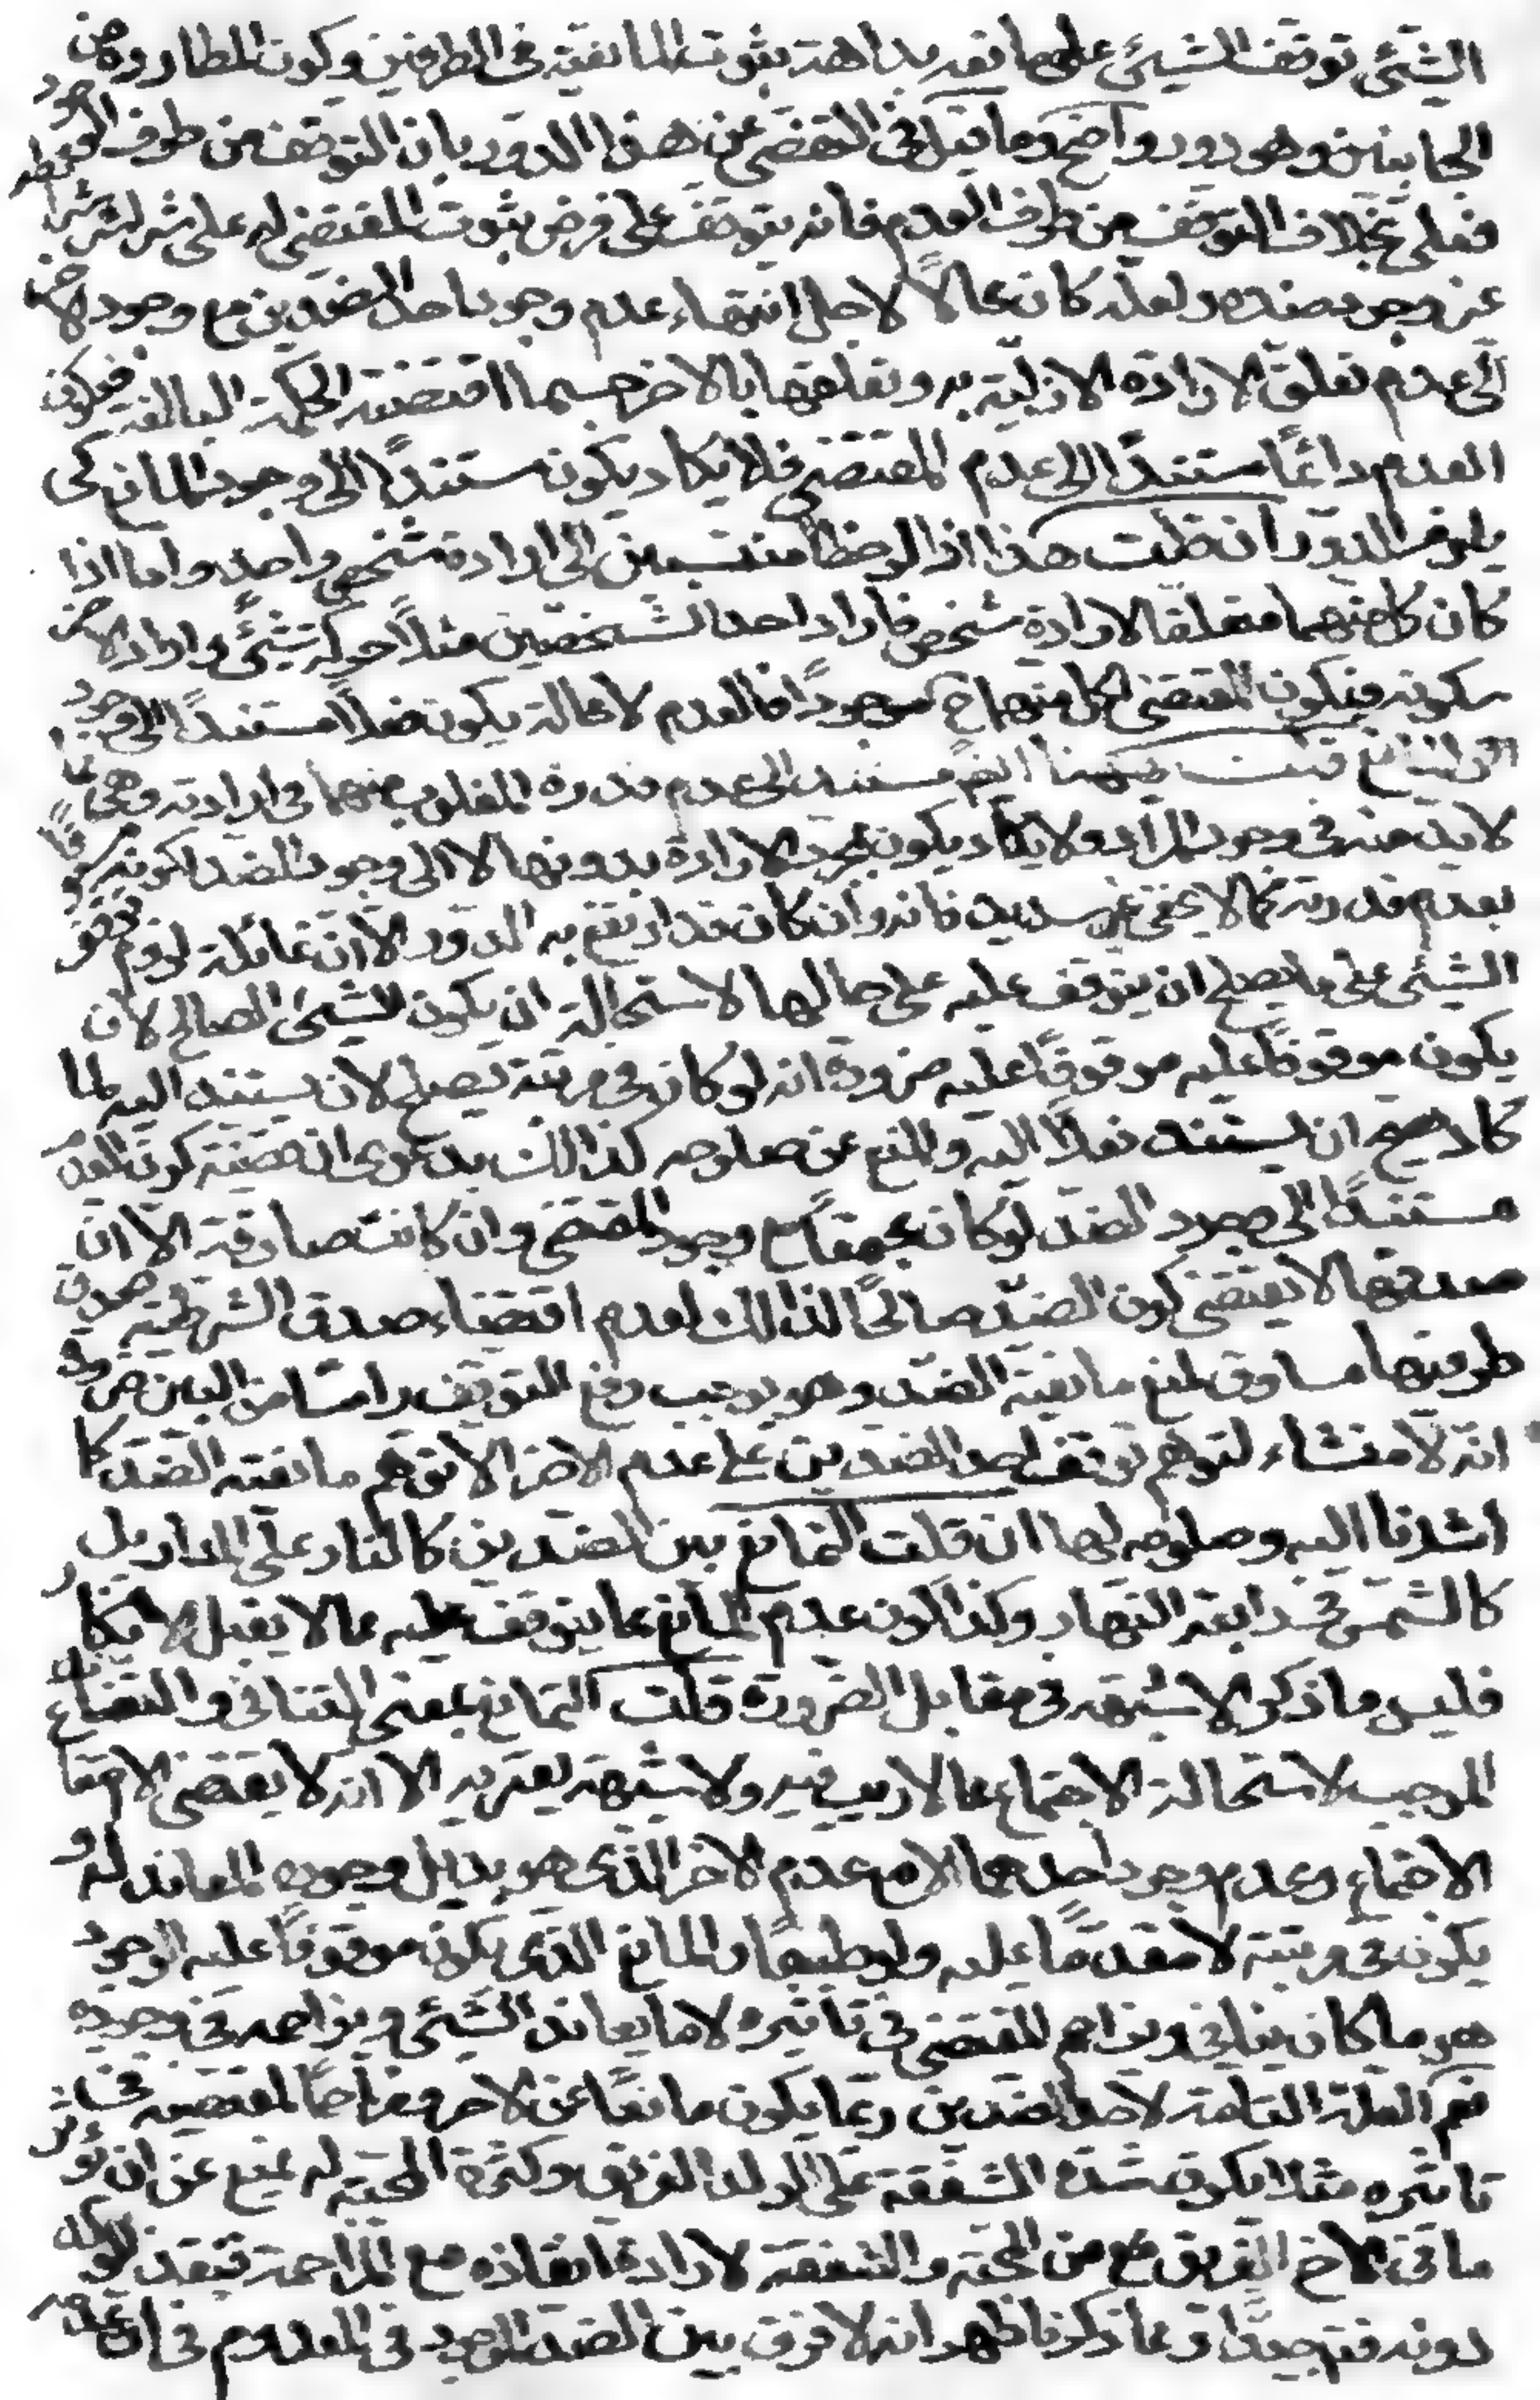 الشئ توقف الشيئ على مانعه بداهة ثبوت المانعية فى الطرفين وكون المطاردة من
الجانبين وهو دور واضح وما قيل فى التفصى عن هذا الدور بان التوقف من طرف الوجود
فعلى بخلاف التوقف من طرف العدم فانه يتوقف على فرض ثبوت المقتضى له على شراشر شرائطه غير
عن وجود ضده ولعله كان محالاً لاجل انتهاء عدم وجود احد الضدين مع وجود الاخر
الى عدم تعلق الارادة الازلية به وتعلقها بالاخر حسبما اقتضته الحكمة البالغة فيكون
العدم دائماً مستنداً الى عدم المقتضى فلا يكاد يكون مستنداً الى وجود المانع كى
يلزم الدور ان قلت هذا اذا لوحظا منتسبين الى ارادة شخص واحد واما اذا
كان كل منهما متعلقا لارادة شخص فاراد احد الشخصين مثلاً حركة شيئ واراد الاخر
سكونه فيكون المقتضى لكل منهما ح موجوداً فالعدم لا محالة يكون فعلاً مستنداً الى وجود
المانع قلت ههنا ايضً مستند الى عدم قدرة المغلوب منهما فى ارادته وهى مما
لا بد منه فى وجود المراد ولا يكاد يكون بمجرد الارادة بدونها لا الى وجود الضد لكونه مسبوقاً
بعدم قدرته كما لا يخفى غير سديد فانه وان كان قد ارتفع به الدور الا ان غائلة لزوم توقف
الشيئ على ما يصلح ان يتوقف عليه على حالها لاستحالة ان يكون الشيئ الصالح لان
يكون موقوفاً عليه موقوفاً عليه ضرورة انه لو كان فى مرتبة يصلح لان يستند اليه لما
كاد يصح ان يستند فعلاً اليه والمنع عن صلوحه لذالك بدعوى ان قضية كون العدم
مستنداً الى وجود الضد لو كان مجتمعاً مع وجود المقتضى وان كانت صادقة الا ان
صدقها لا يقتضى كون الضد صالحاً لذالك لعدم اقتضاء صدق الشرطية صدق
طرفيها مساوق لمنع مانعية الضد وهو يوجب رفع التوقف راسا من البين ضرورة
انه لا منشاء لتوهم توقف احد الضدين على عدم الاخر الا توهم مانعية الضد كما
اشرنا اليه وصلوحه لها ان قلت التمانع بين الضدين كالنار على المنار بل
كالشمس فى رابعة النهار وكذا كون عدم المانع مما يتوقف عليه مما لا يقبل الانكار
فليس ما ذكر الا شبهة فى مقابل الضرورة قلت التمانع بمعنى التنافى والتعاند
الموجب لاستحالة الاجتماع مما لا ريب فيه ولا شبهة يعتريه الا انه لا يقتضى الا امتناع
الاجتماع وعدم وجود احدهما الا مع عدم الاخر الذى هو بديل وجوده المعاند له و
يكون فى مرتبته لا مقدماً عليه ولو طبعاً والمانع الذى يكون موقوفاً عليه الوجود
هو ما كان ينافى ويزاحم المقتضى فى تاثيره لا ما يعاند الشئ ويزاحمه فى وجوده
نعم العلة التامة لاحد الضدين ربما يكون مانعاً عن الاخر ومزاحماً لمقتضيه فى
تاثيره مثلا يكون شدة الشفقة على الولد الغريق وكثرة المحبة له يمنع عن ان يؤثر
ما فى الاخ الغريق مع من المحبة والشفقة لارادة انقاذه مع المزاحمة فينقذ الولد
دونه فتامل جيداً ومما ذكرنا ظهر انه لا فرق بين الضد الموجود والمعدوم فى ان عدمه